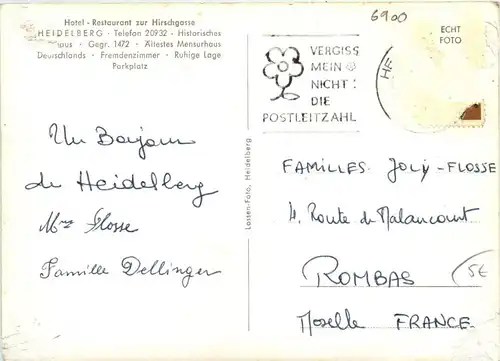 Hotel - Restaurant zur Hirschgasse
HEIDELBERG · Telefon 20932 - Historisches
haus · Gegr. 1472 · Ältestes Mensurhaus
Deutschlands · Fremdenzimmer · Ruhige Lage
Parkplatz
6900
ECHT
FOTO
VERGISS
MEIN
NICHT
DIE
POSTLEITZAHL
HE
Un Bonjour
de Heidelberg
Mme Flosse
Famille Dellinger
Lossen-Foto, Heidelberg
FAMILLES JOLY-FLOSSE
4. Route de Malancourt
ROMBAS
5€
Moselle FRANCE.